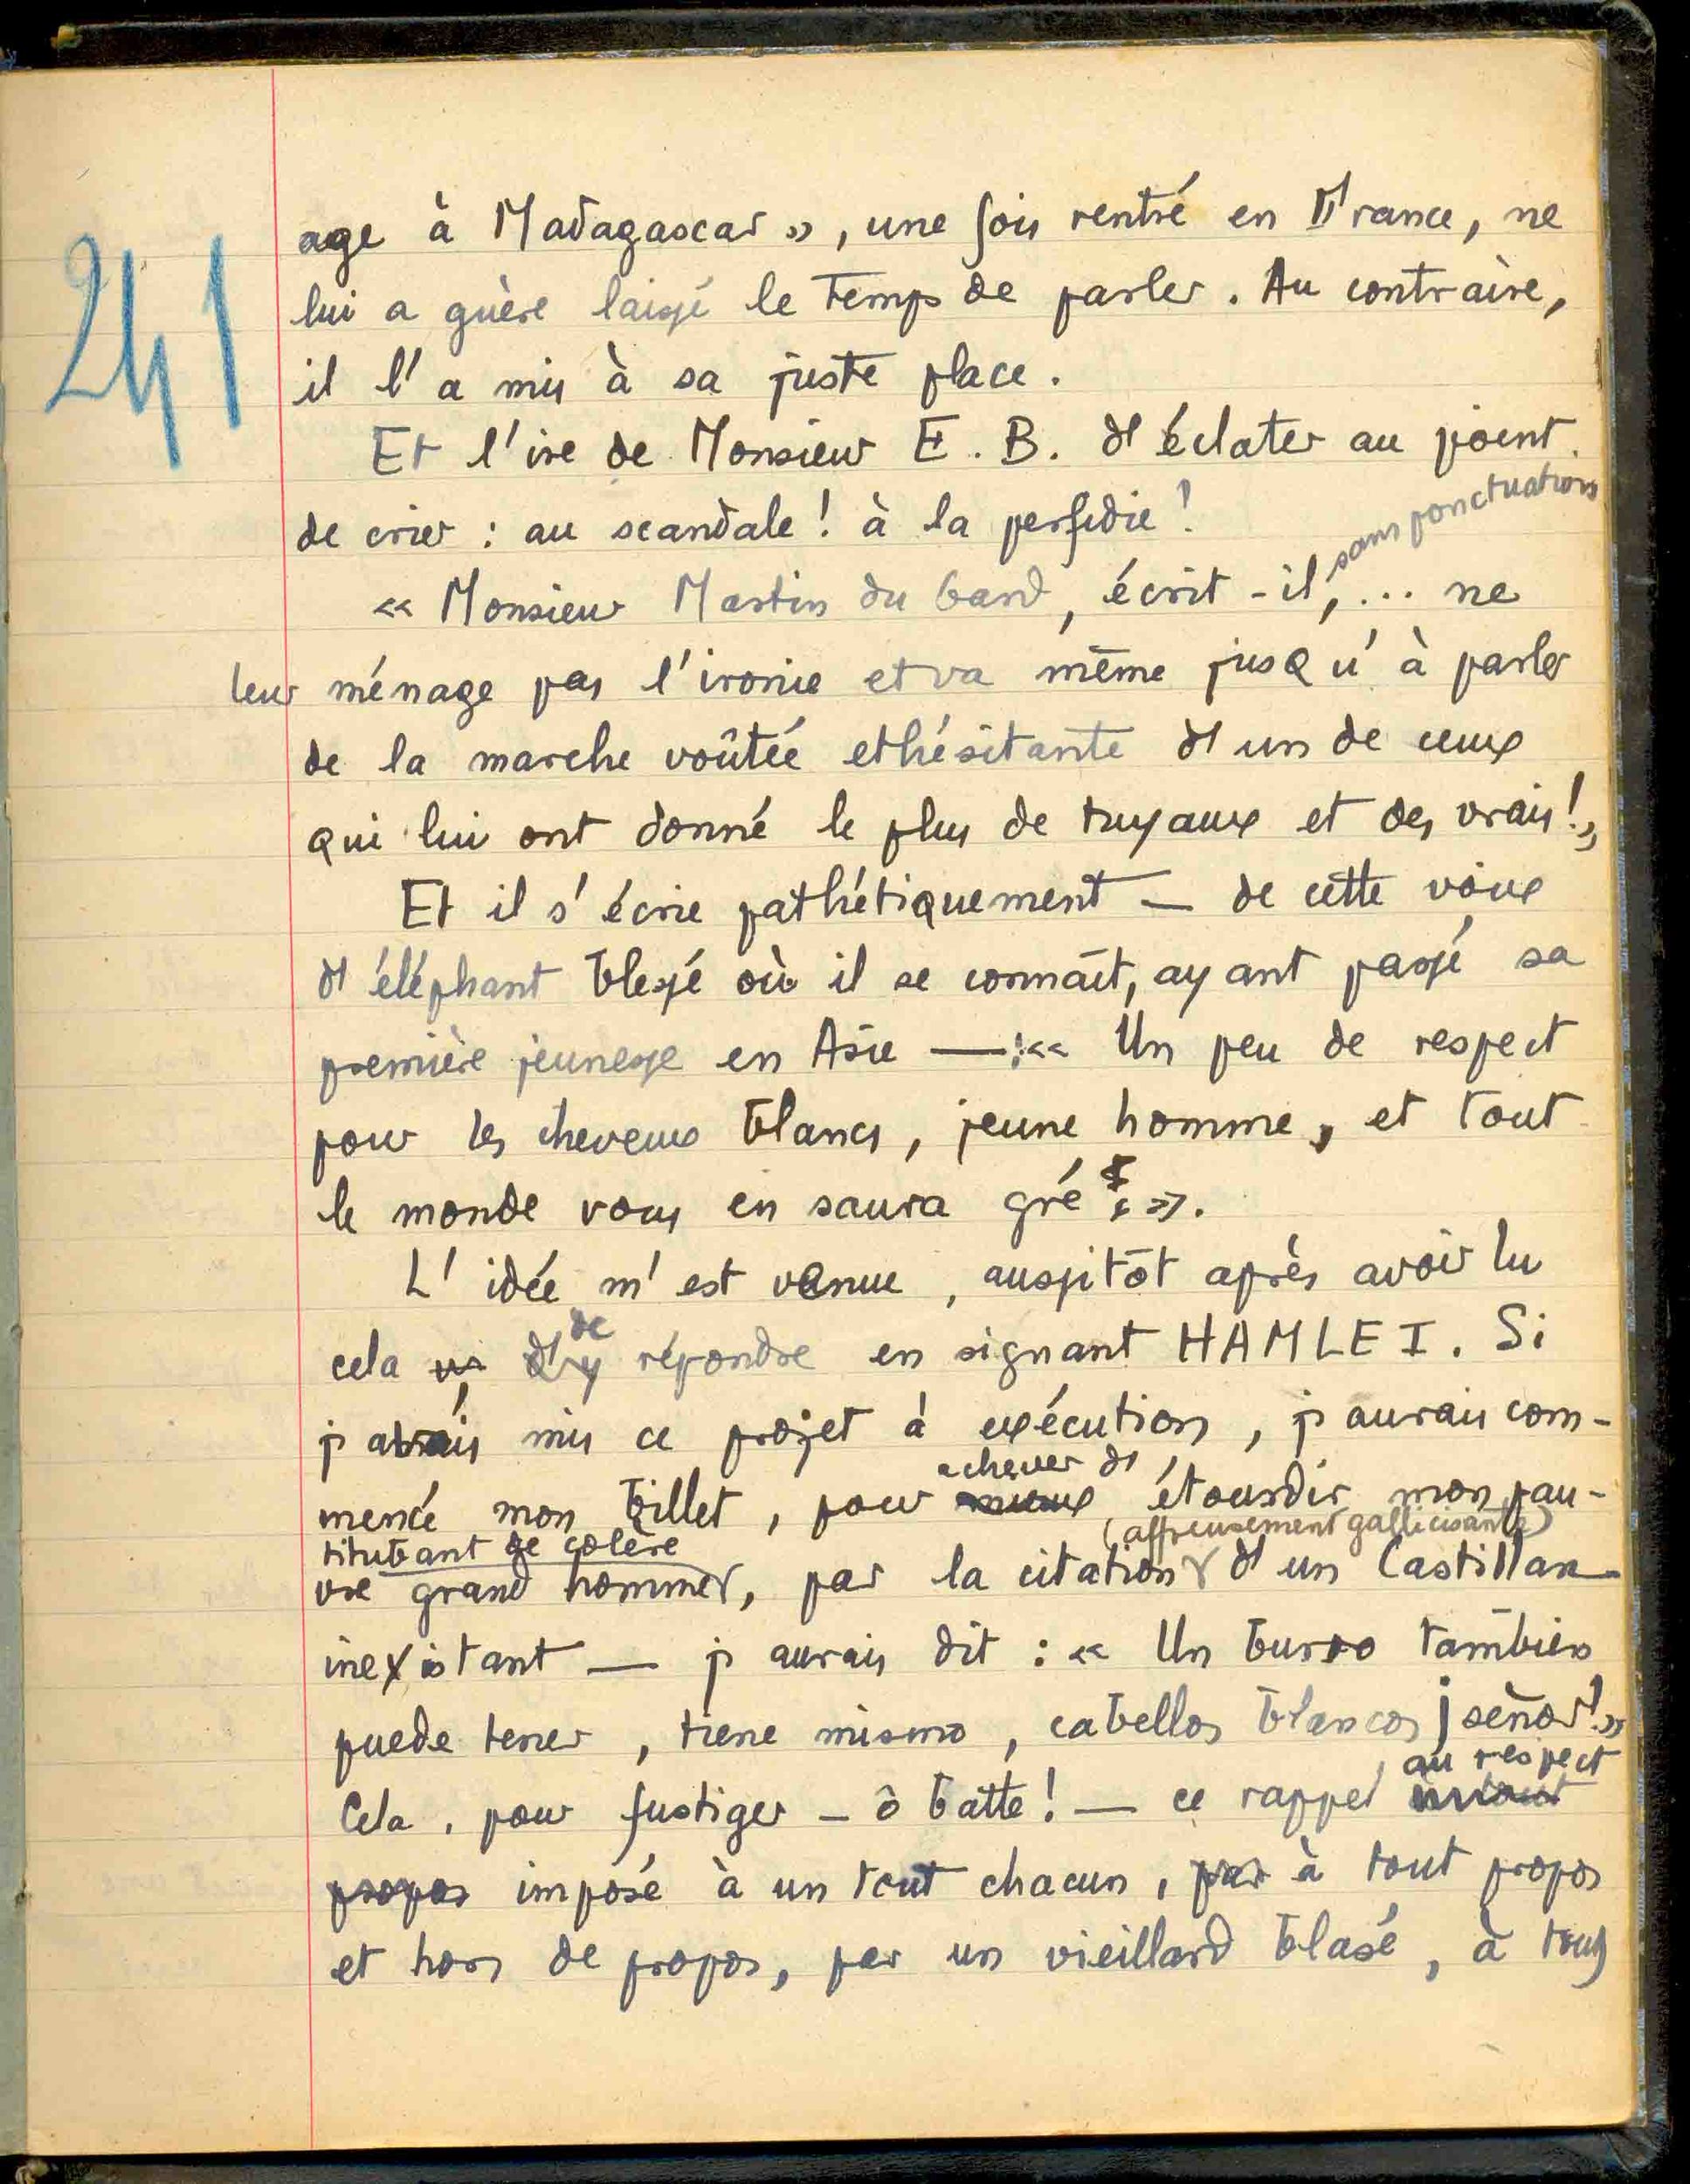 241
age à Madagascar », une fois rentré en France, ne
lui a guère laissé le temps de parler. Au contraire,
il l'a mis à sa juste place.
Et l'ire de Monsieur E. B. d'éclater au point
de crier : au scandale ! à la perfidie !
sans ponctuation
« Monsieur Martin du Gard, écrit-il, ... ne
leur ménage pas l'ironie et va même jusqu'à parler
de la marche voûtée et hésitante d'un de ceux
qui lui ont donné le plus de tuyaux et des vrais ! »
Et il s'écrie pathétiquement — de cette voix
d'éléphant blessé où il se connaît, ayant passé sa
première jeunesse en Asie — : « Un peu de respect
pour les cheveux blancs, jeune homme, et tout
le monde vous en saura gré ».
L'idée m'est venue, aussitôt après avoir lu
de
cela d'y répondre en signant HAMLET. Si
j'avais mis ce projet à exécution, j'aurais com-
achever d'
mencé mon billet, pour mieux étourdir mon pau-
titubant de colère (affreusement gallicisante)
vre grand homme, par la citation d'un Castillan
inexistant — j'aurais dit : « Un burro tambien
puede tener, tiene mismo, cabellos blancos ¡ señor ! »
au respect
Cela, pour fustiger — ô batte ! — ce rappel
propos imposé à un tout chacun, par à tout propos
et hors de propos, par un vieillard blasé, à tous